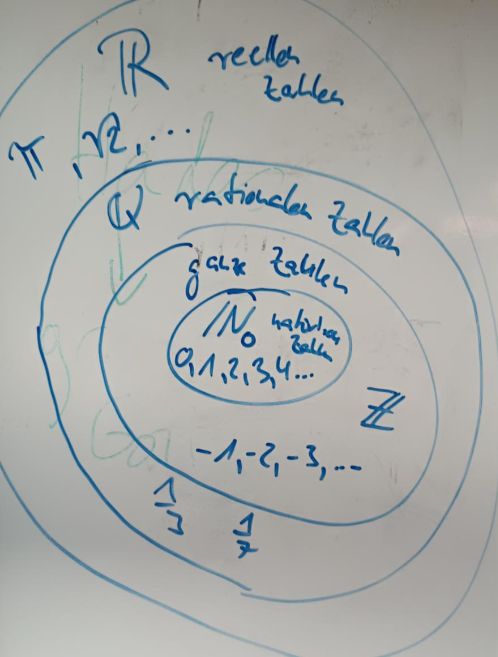 ℝ reellen
Zahlen
π, √2, ...
ℚ rationalen Zahlen
ganze Zahlen
ℕ₀ natürlichen
Zahlen
0, 1, 2, 3, 4...
ℤ
-1, -2, -3, ...
1/3 1/7